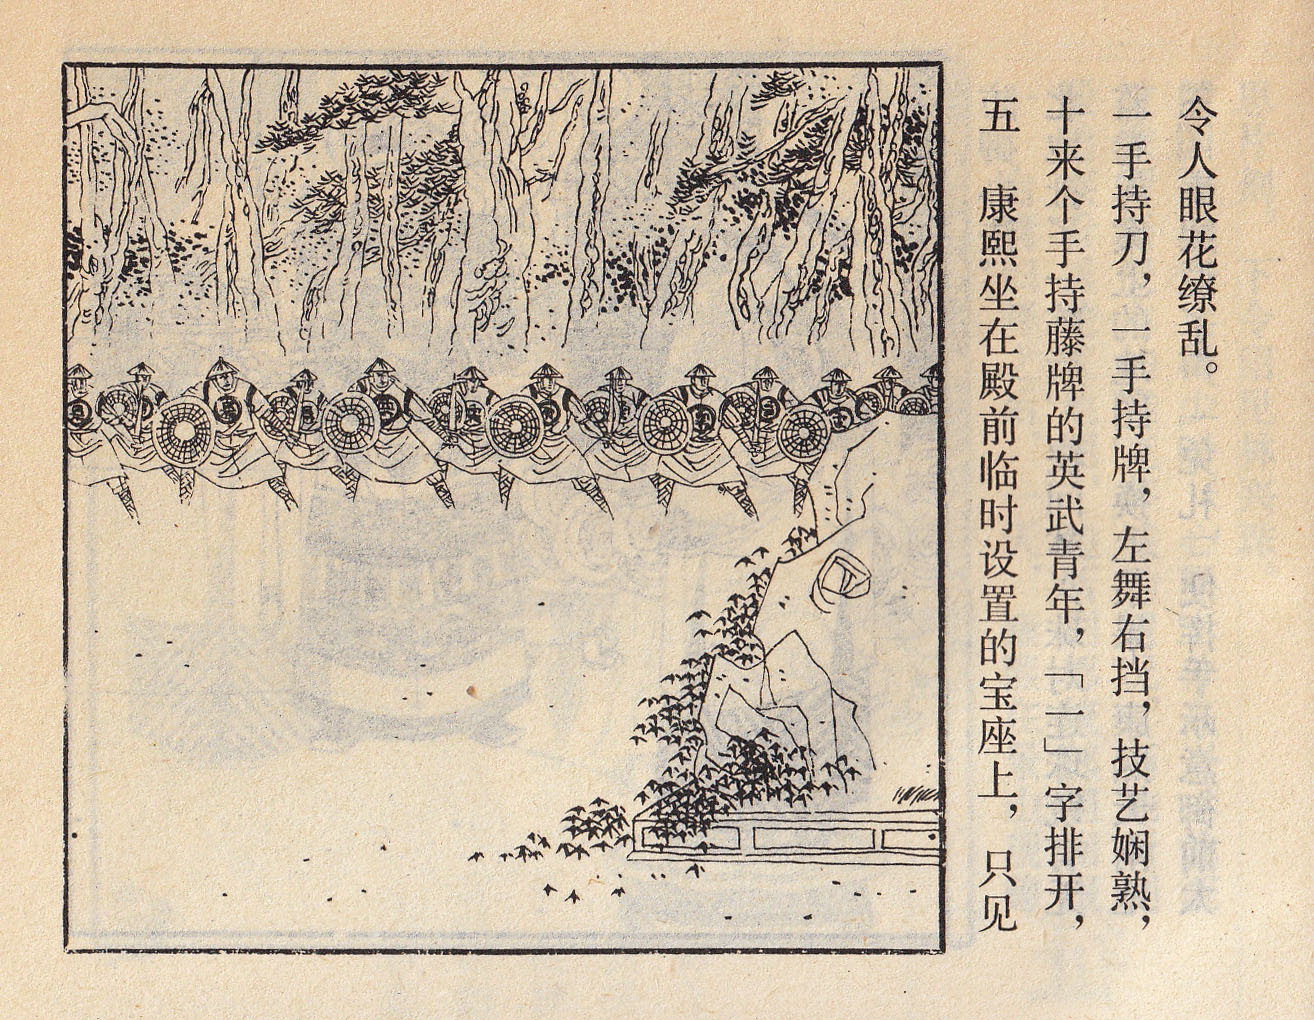 五 康熙坐在殿前临时设置的宝座上，只见
十来个手持藤牌的英武青年，「一」字排开，
一手持刀，一手持牌，左舞右挡，技艺娴熟，
令人眼花缭乱。